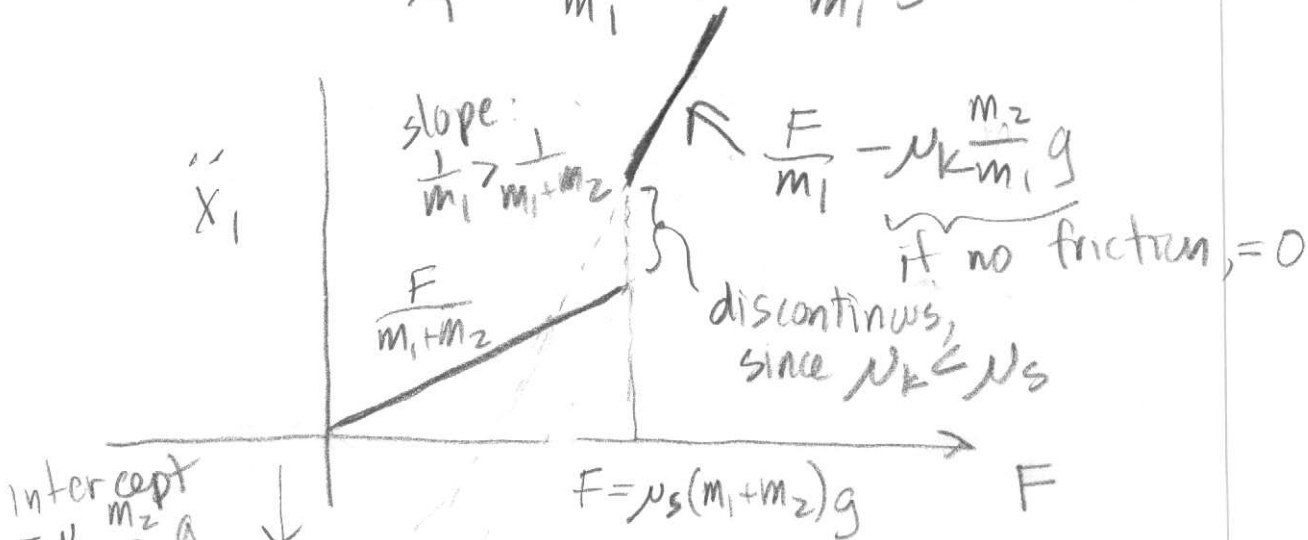 m₁ m₁
slope:
1/m₁ > 1/(m₁+m₂)
ẍ₁
F/m₁ - μₖ m₂/m₁ g
if no friction, = 0
F/(m₁+m₂)
discontinuus,
since μₖ < μₛ
intercept
m₂ g
F = μₛ(m₁+m₂)g
F